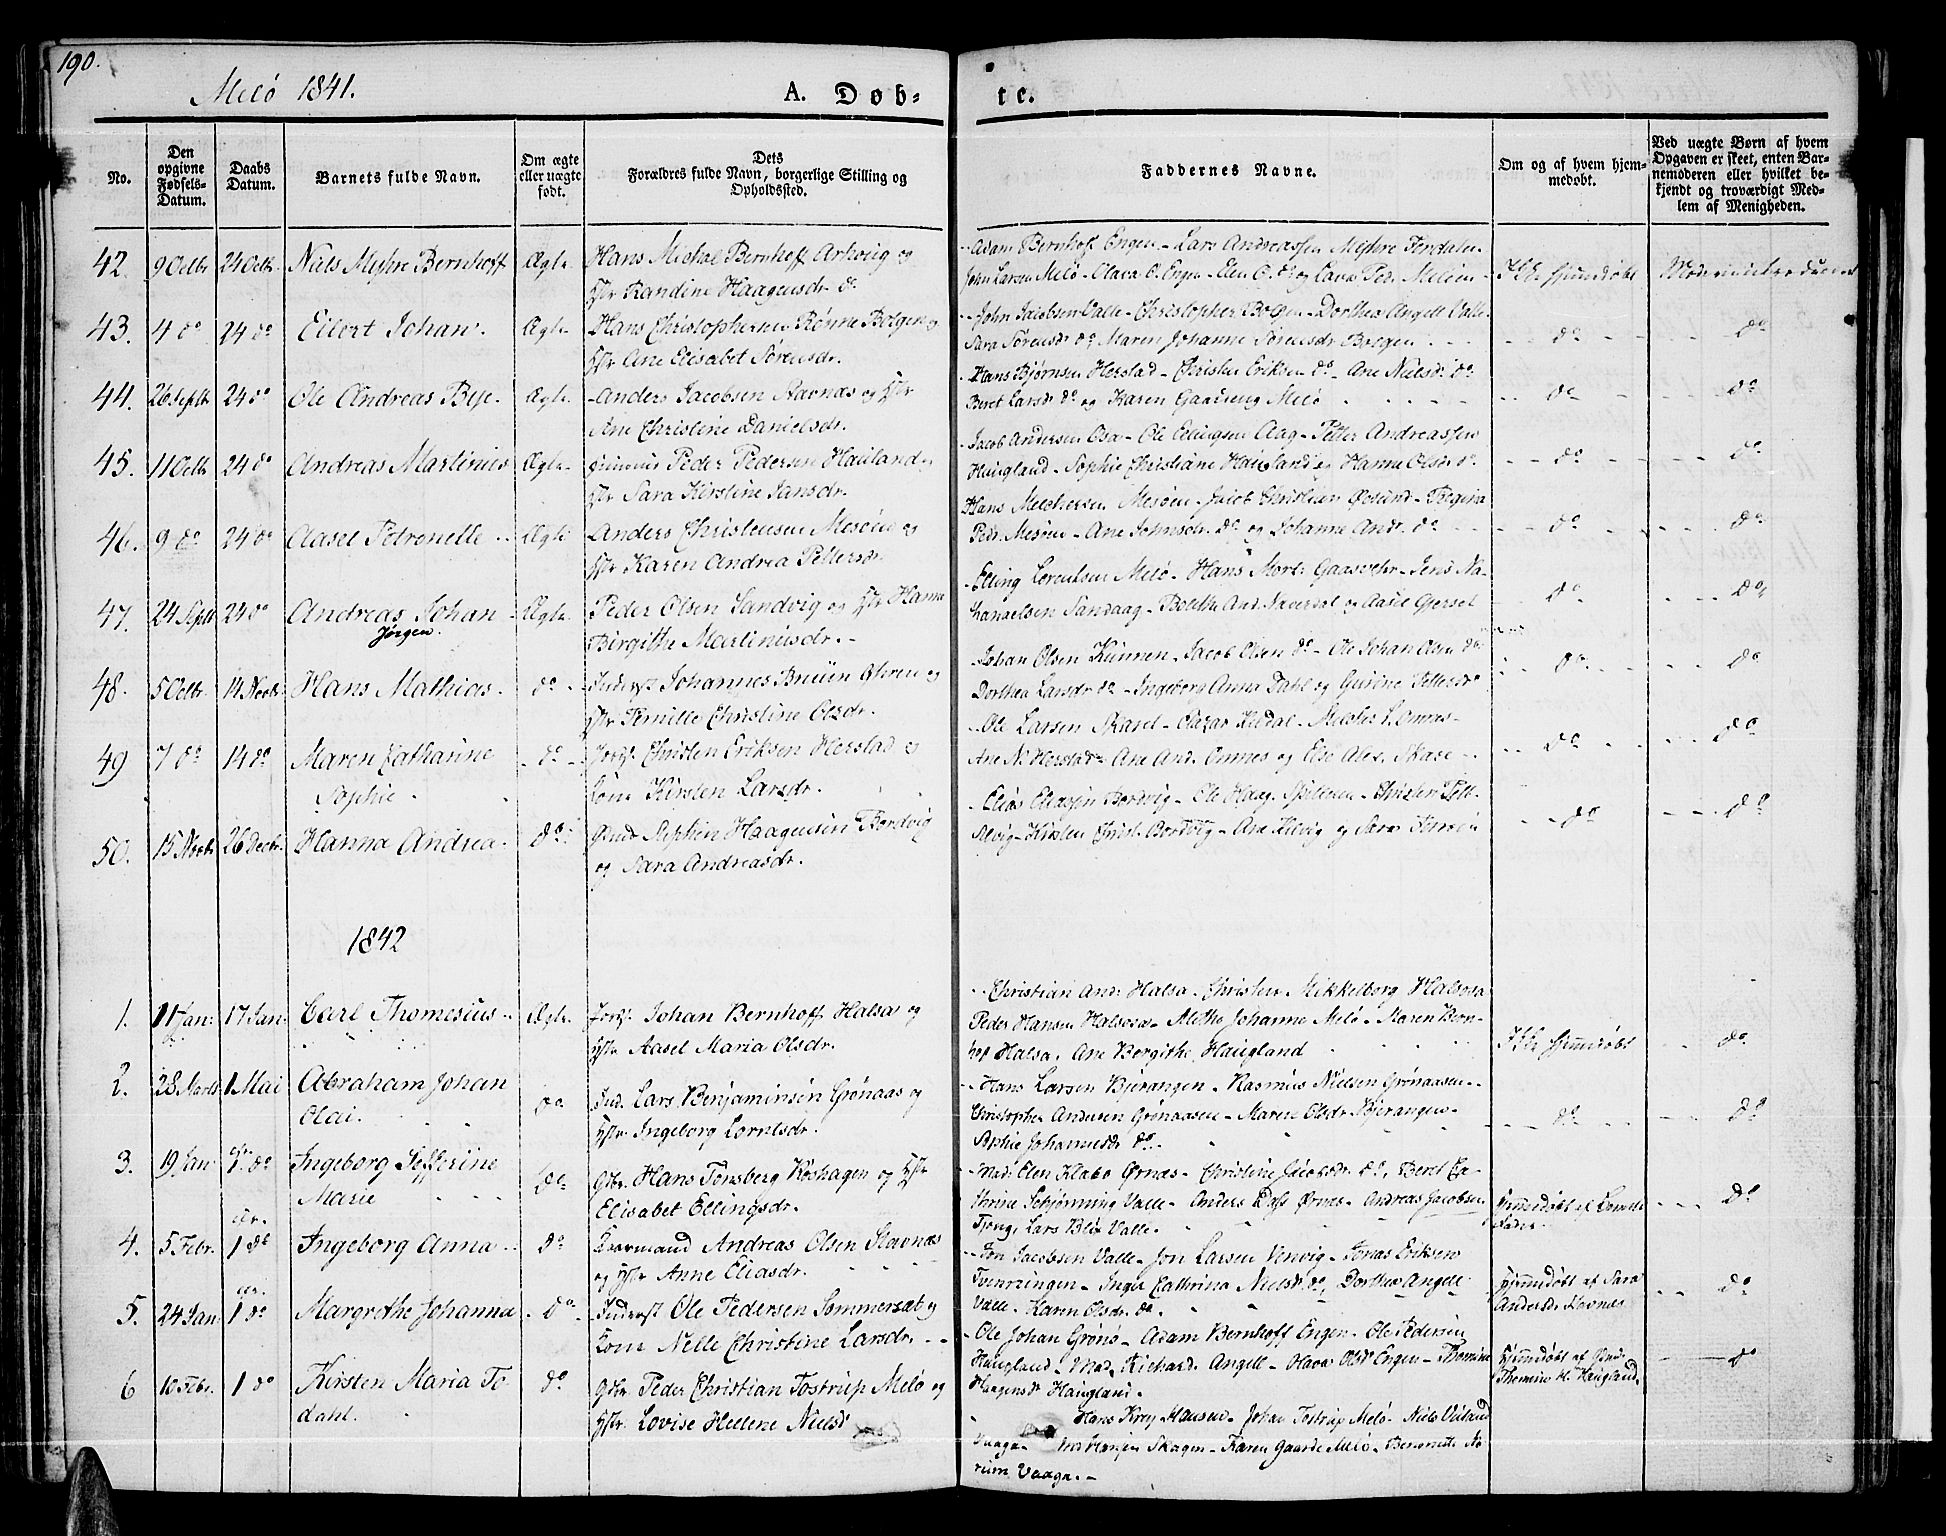 190.
Melö 1841.
A. Døb-
te.
No.
Den opgivne Fødsels-Datum.
Daabs Datum.
Barnets fulde Navn.
Om ægte eller uægte født.
Dets Forældres fulde Navn, borgerlige Stilling og Opholdssted.
Faddernes Navne.
Om og af hvem hjem-medøbt.
Ved uægte Børn af hvem Opgaven er skeet, enten Bar-nemoderen eller hvilket be-kjendt og troværdigt Med-lem af Menigheden.
42. 9 Octbr 24 Octb. Niels Myhre Bernhoff Ægte Hans Michal Bernhoff Arhoug og
Hstr Randine Haagensdr do
Adam Bernhof Engen - Lars Andreassen Myhre
John Larsen Melö - Olava O. Engen - Elen O. do og Lava Ped. Melöen
Ikke hjemdöbt
43. 4 do 24 do Eilert Johan. Ægte Hans Christophersen Rönne Bolgen og
Hstr Ane Elisabet Sørensdr.
John Jacobsen Valle - Christopher Bolgen - Dorthea Angell Valle
Sara Sørensdr do, Maren Johanne Sørensdr Bolgen do do
44. 26 Septb 24 do Ole Andreas Bye. Ægte Anders Jacobsen Ravnaas og Hstr
Ane Christine Danielsdr.
Hans Bjørnsen Herstad - Christen Eriksen do - Ane Nielsdr do
Beret Larsdr do og Karen Gaardseng Melö do do
45. 11 Octb 24 do Andreas Martinus Ægte Peder Pedersen Hauland og
Hstr Sara Kirstine Jansdr.
Jacob Andersen Osa - Ole Ellingsen Aag - Petter Andreassen
Haugland - Sophie Christiane Haugland og Hanna Olsdr do do do
46. 9 do 24 do Aasel Petronelle Ægte Anders Christensen Mesöen og
Hstr Karen Andrea Pettersdr.
Hans Melchersen Mesöen - Jacob Christian Øesund - Regina
Pedr. Mesöen - Ane Johnsdr. do og Johanna Andr. do do do
47. 24 Septb 24 do Andreas Johan
Jörgen.
Ægte Peder Olsen Sandvig og Hstr Hanna
Birgitte Martinusdr.
Elling Lorentsen Melö - Hans Mort. Gaasvær - Jens Na-
thanaelsen Sandaag - Bolette And. og Aasel Gjerset do do
48. 5 Octbr. 14 Novbr Hans Mathias. do Inderst Johannes Bruun Øhren og
Hstr Pernille Christine Olsdr.
Johan Olsen Kunnen - Jacob Olsen do - Ole Johan Olsen do
Dorthea Larsdr do - Ingeborg Anna Dahl og Gurine Pettersdr do do
49 7 do 14 do Maren Catharine
Sophie.
do Christen Eriksen Herstad og
Kone Kirsten Larsdr.
Ole Larsen Skaset - Omnes
Ane N. Herstad - Ane And. Omnes og Else Alex. Skase do do
50. 15 Novbr 26 Decbr. Hanna Andrea. do Gmd Stephen Haagensen Bordvig
og Sara Andreasdr.
Elias Eliassen Bordvig - Ole Haag. Spilderen - Christen Pett.
Selvig - Kirsten Christ. Bordvig - Ane Kilvig og Sara do do
1842
1. 11 Jan: 17 Jan. Carl Thomesius Ægte. Johan Bernhoff Halsa og
Hstr Aasel Maria Olsdr.
Christian And. Halsa - Christen Mikkelborg Halsosa
Peder Hansen Halsosa - Alethe Johanne Melö - Maren Bern-
hof Halsa, Ane Bergithe Haugland
Ikke hjemdöbt do
2. 28 Marts 1 Mai Abraham Johan
Olai.
do Ind. Lars Benjaminsen Grönaas og
Hstr. Ingeborg Lorntsdr.
Hans Larsen Bjerangen - Rasmus Nielsen Grönaasen
Christopher Andersen Grönaasen - Maren Olsdr Bjerangen
Sophie Johannesdr do do do
3. 19 Jan 1. do Ingeborg Jefferine
Marie
do Gbr. Hans Tönsberg Koshagen og Hstr
Elisabet Ellingsdr.
Mad: Elen Klabo Ørnæs - Christine Jacobsdr do, Beret Ca-
thrine Schjönning Valle - Anders Dass Ørnes - Andreas Jacobsen
Tjong, Lars Blix Valle.
Hjemmedöbt af
Fader do
4. 5 Febr. 1 do Ingeborg Anna do Andreas Olsen Stavnæs
og Hstr Anne Eliasdr.
Jon Jacobsen Valle - Jon Larsen Venvig - Jonas Eriksen
Tverværingen - Inger Cathrina Nielsdr do, Dorthea Angell
Valle - Karen Olsdr. do
Hjemmedöbt af Sara
Andersdr Stavnes do
5. 24 Jan 1 do Margrethe Johanna do Inderst Ole Pedersen Sommersæt og
Kone Nelle Christine Larsdr.
Ole Johan Grönö - Adam Bernhoff Engen - Ole Pedersen
Haugland - Mad. Richards Angell - Olava Olsdr Engen - Thomine
Haagensdr Haugland.
Hjemmedöbt af
Thomine H. Haugland. do
6 10 Febr. 1 do Kirsten Maria To-
dahl.
do Gbr Peder Christian Tostrup Melö og
Hstr. Lovise Hellene Nielsd
Hans Krey Hansen - Johan Tostrup Melö - Niels
Vaaga - Skagen - Karen Gaarde Melö - Bennette No-
rum Vaaga.